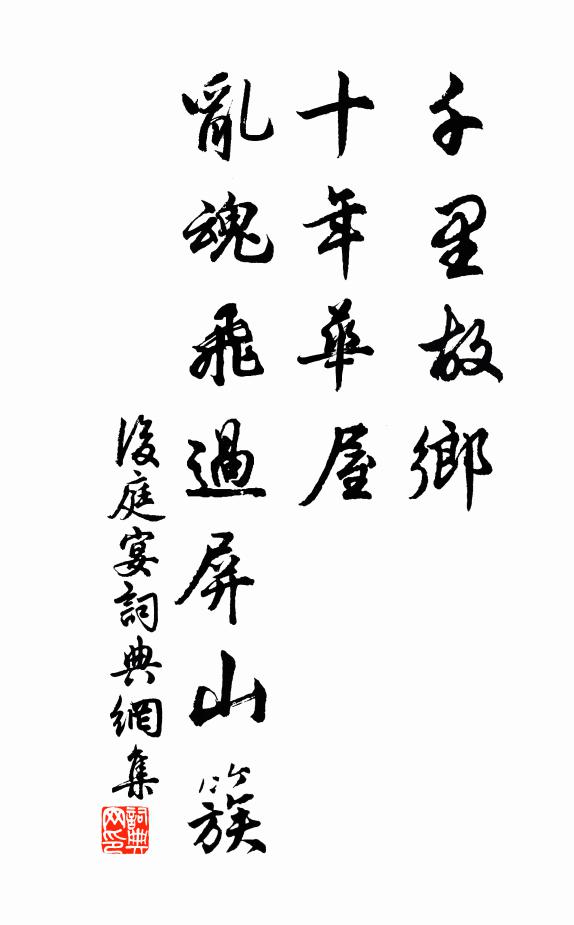 千里故鄉
十年華屋
亂魂飛過屏山簇
後庭宴詞典網集
詞典
网印